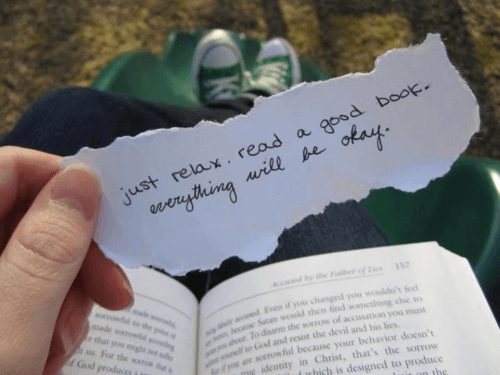 just relax. read a good book.
everything will be okay.
Accused by the Father of Lies 157
accused. Even if you changed you wouldn't feel
because Satan would then find something else to
you about. To disarm the sorrow of accusation you must
yourself to God and resist the devil and his lies.
if you are sorrowful because your behavior doesn't
identity in Christ, that's the sorrow
which is designed to produce
on the
made sorrowful,
sorrowful to the point of
made sorrowful according
that you might not suffer
us. For the sorrow that is
of God produces a